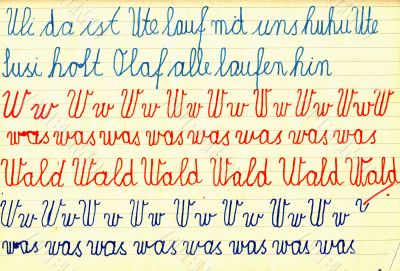 Uli da ist Ute lauf mit uns huhu Ute
Susi holt Olaf alle laufen hin
W w W w W w W w W w W w W w W w W
was was was was was was was was
Wald Wald Wald Wald Wald Wald
W w W w W w W w W w W w W w W w v
was was was was was was was was